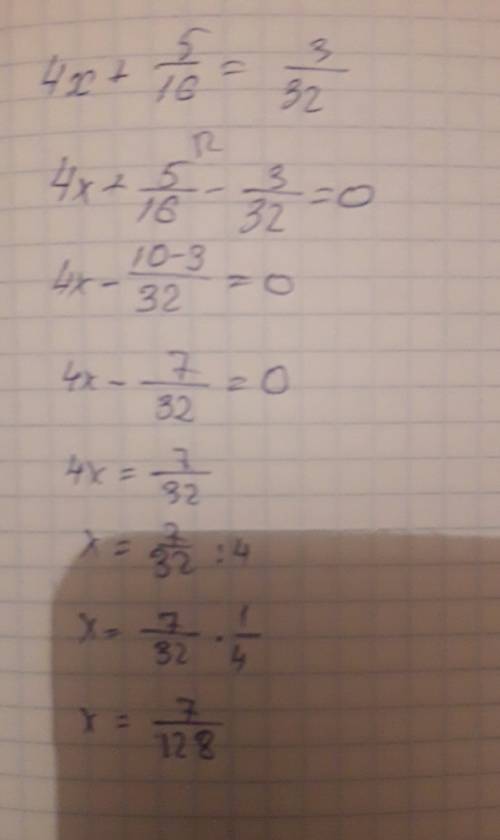 4x + 5/16 = 3/32
4x + 5/16 - 3/32 = 0
4x - 10-3/32 = 0
4x - 7/32 = 0
4x = 7/32
x = 7/32 : 4
x = 7/32 · 1/4
x = 7/128